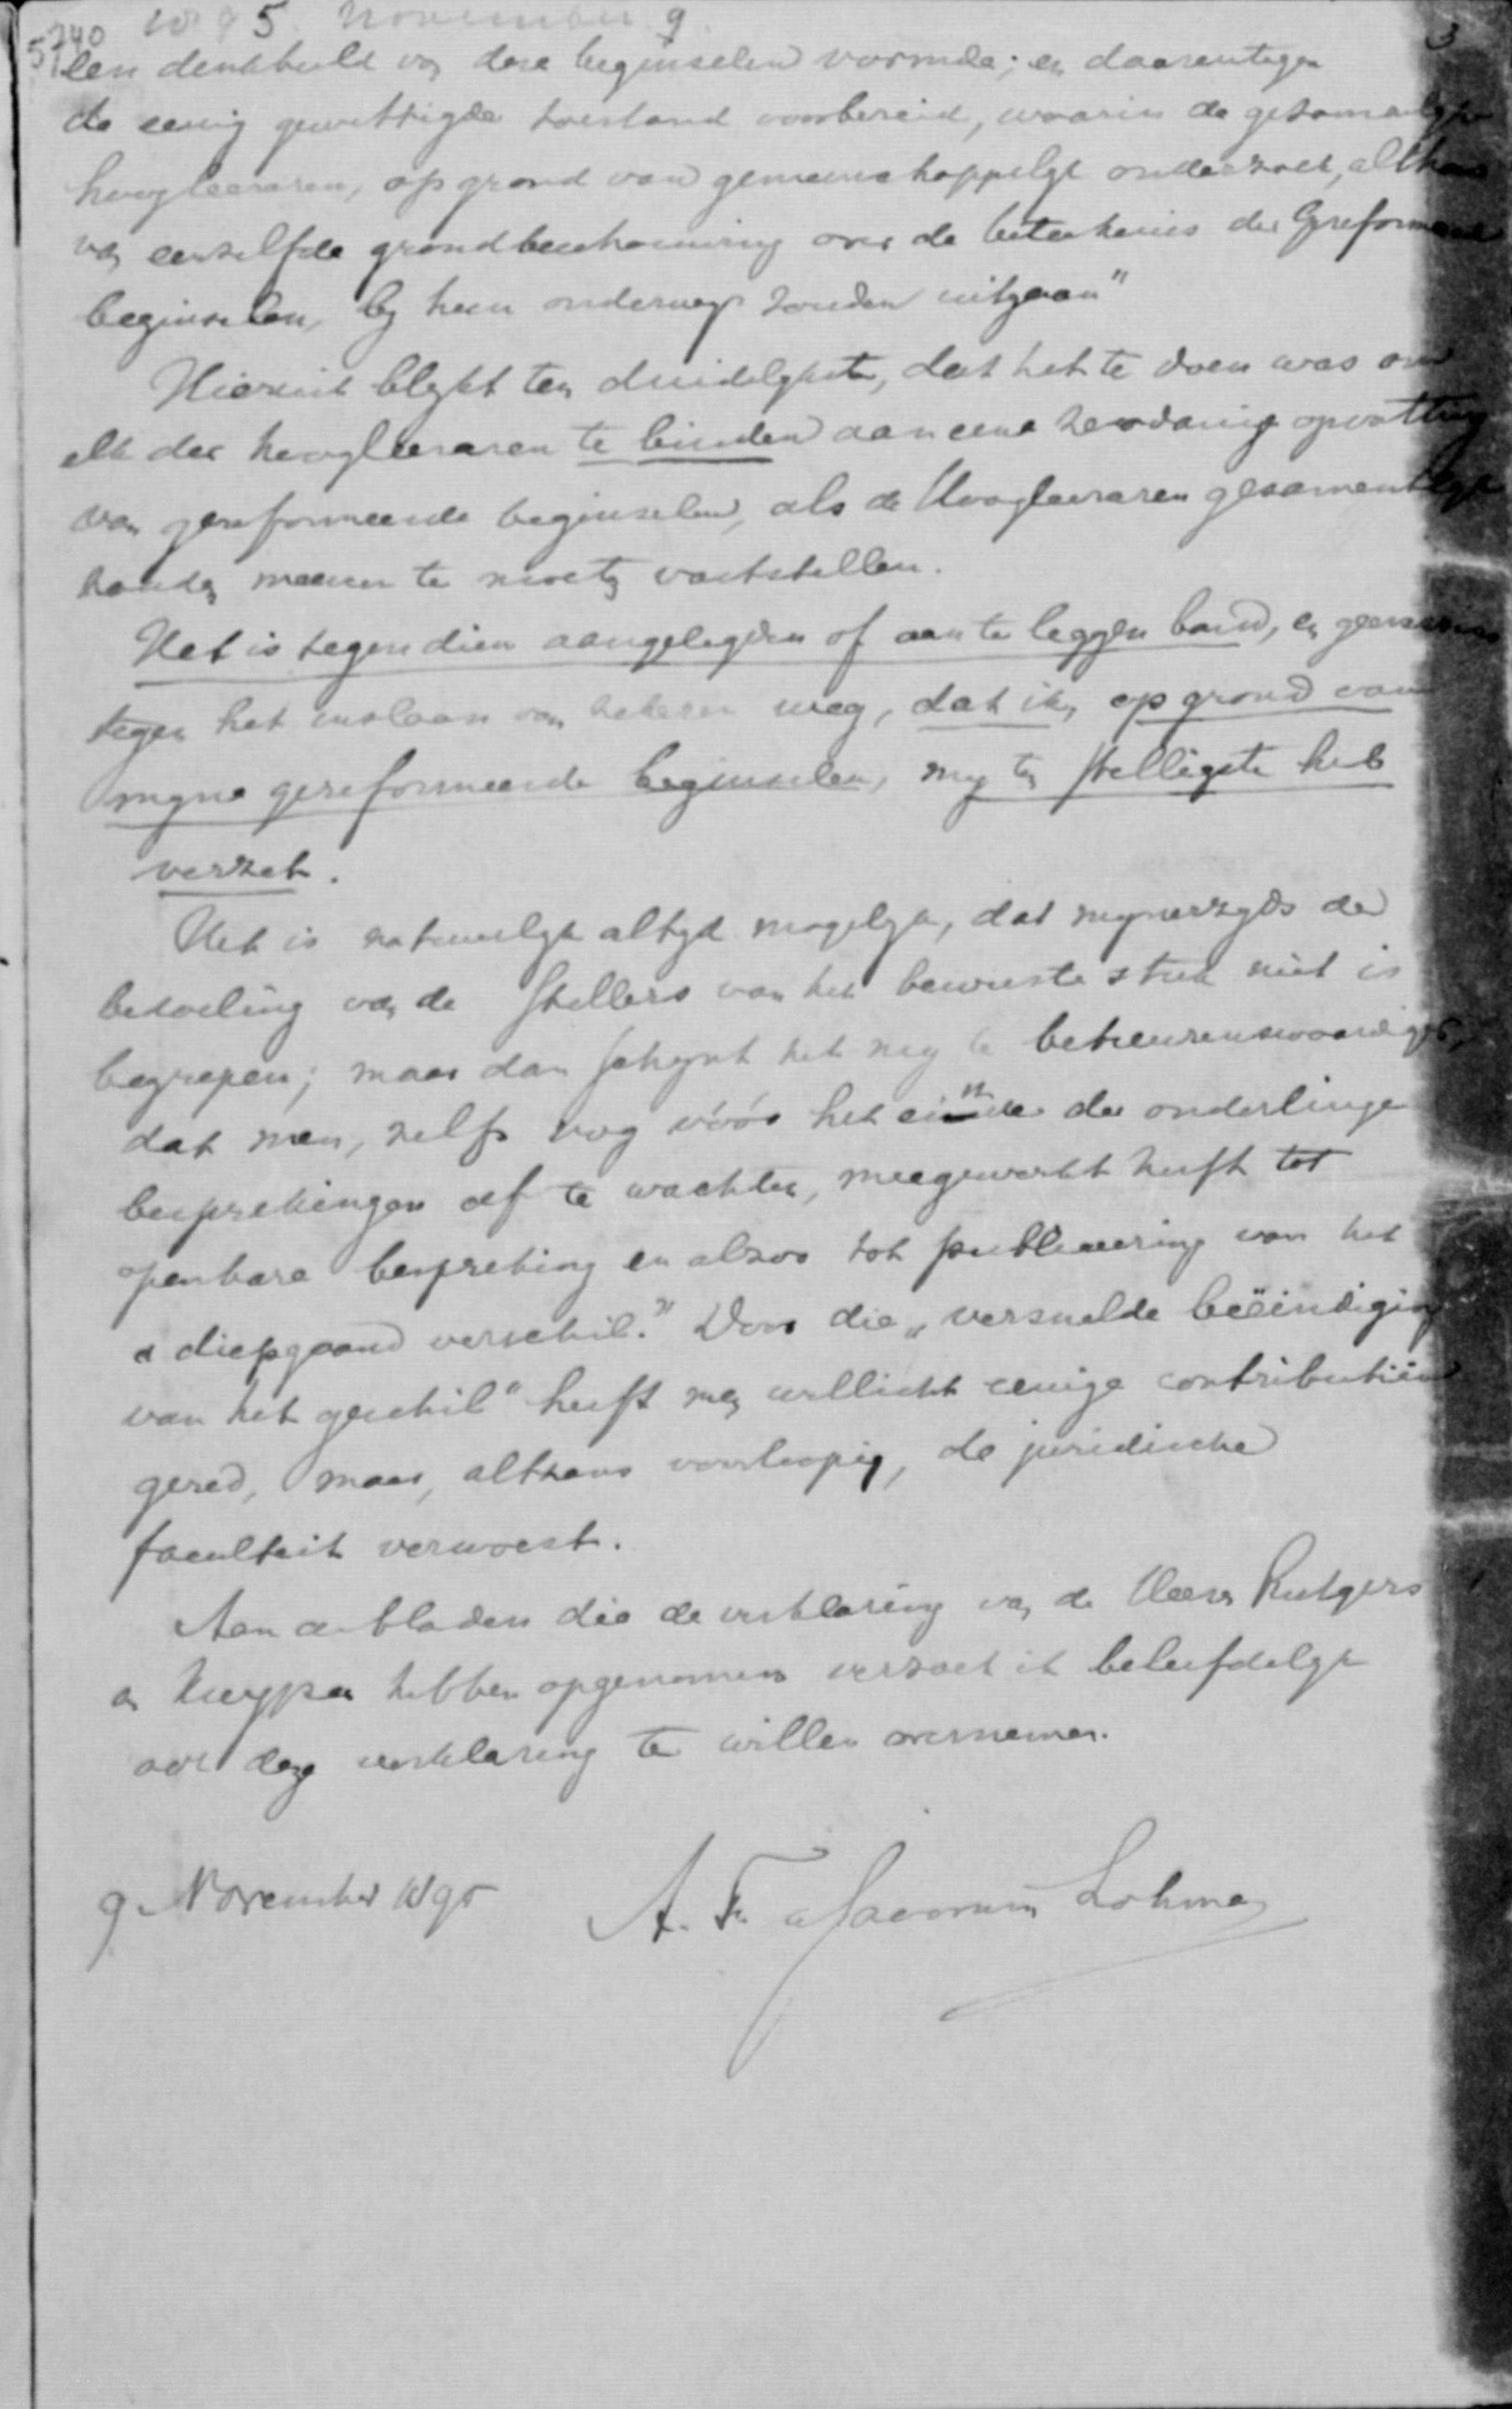 5740 1895 November 9
3
len denkbeeld van deze beginselen vormde; en daarentegen
de eenig gewettigde toestand voorbereid, waarin de gezamenlyke
hoogleeraren, op grond van gemeenschappelyk onderzoek, althans
van eenzelfde grondbeschouwing over de beteekenis der Gereformeerde
beginselen, by hun onderwys zouden uitgaan"
Hieruit blykt ten duidelykste, dat het te doen was om
elk der hoogleeraren te binden aan eene zoodanige opvatting
van gereformeerde beginselen, als de Hoogleeraren gezamentlyk
zouden meenen te moeten vaststellen.
Het is tegen dien aangelegden of aan te leggen band, en geenszins
tegen het inslaan van zekeren weg, dat ik, op grond van
myne gereformeerde beginselen, my ten stelligste heb
verzet.
Het is natuurlyk altyd mogelyk, dat mynerzyds de
bedoeling van de stellers van het bewuste stuk niet is
begrepen; maar dan schynt het my te betreurenswaardiger,
dat men, zelfs nog vóór het einde der onderlinge
besprekingen af te wachten, meegewerkt heeft tot
openbare bespreking en alzoo tot publiceering van het
"diepgaand verschil." Door die "versnelde beëindiging
van het geschil" heeft men wellicht eenige contributiën
gered, maar, althans voorloopig, de juridische
faculteit verwoest.
Aan de bladen die de verklaring van de Heeren Rutgers
en Kuyper hebben opgenomen verzoek ik beleefdelyk
ook deze verklaring te willen overnemen.
9 November 1895 A. F. de Savornin Lohman